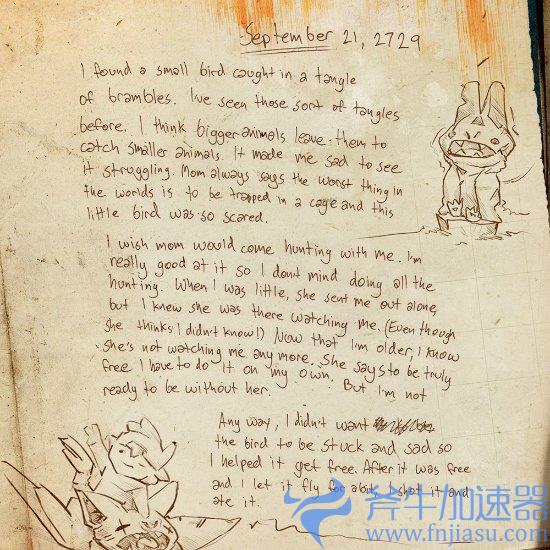 September 21, 2729
I found a small bird caught in a tangle
of brambles. I've seen those sort of tangles
before. I think bigger animals leave them to
catch smaller animals. It made me sad to see
it struggling. Mom always says the worst thing in
the worlds is to be trapped in a cage and this
little bird was so scared.
I wish mom would come hunting with me. I'm
really good at it so I dont mind doing all the
hunting. When I was little, she sent me out alone,
but I knew she was there watching me. (Even though
she thinks I didn't know!) Now that I'm older, I know
she's not watching me any more. She says to be truly
free I have to do it on my own. But I'm not
ready to be without her.
Any way, I didn't want
the bird to be stuck and sad so
I helped it get free. After it was free
and I let it fly for a bit I shot it and
ate it.
斧牛加速器
www.fnjiasu.com